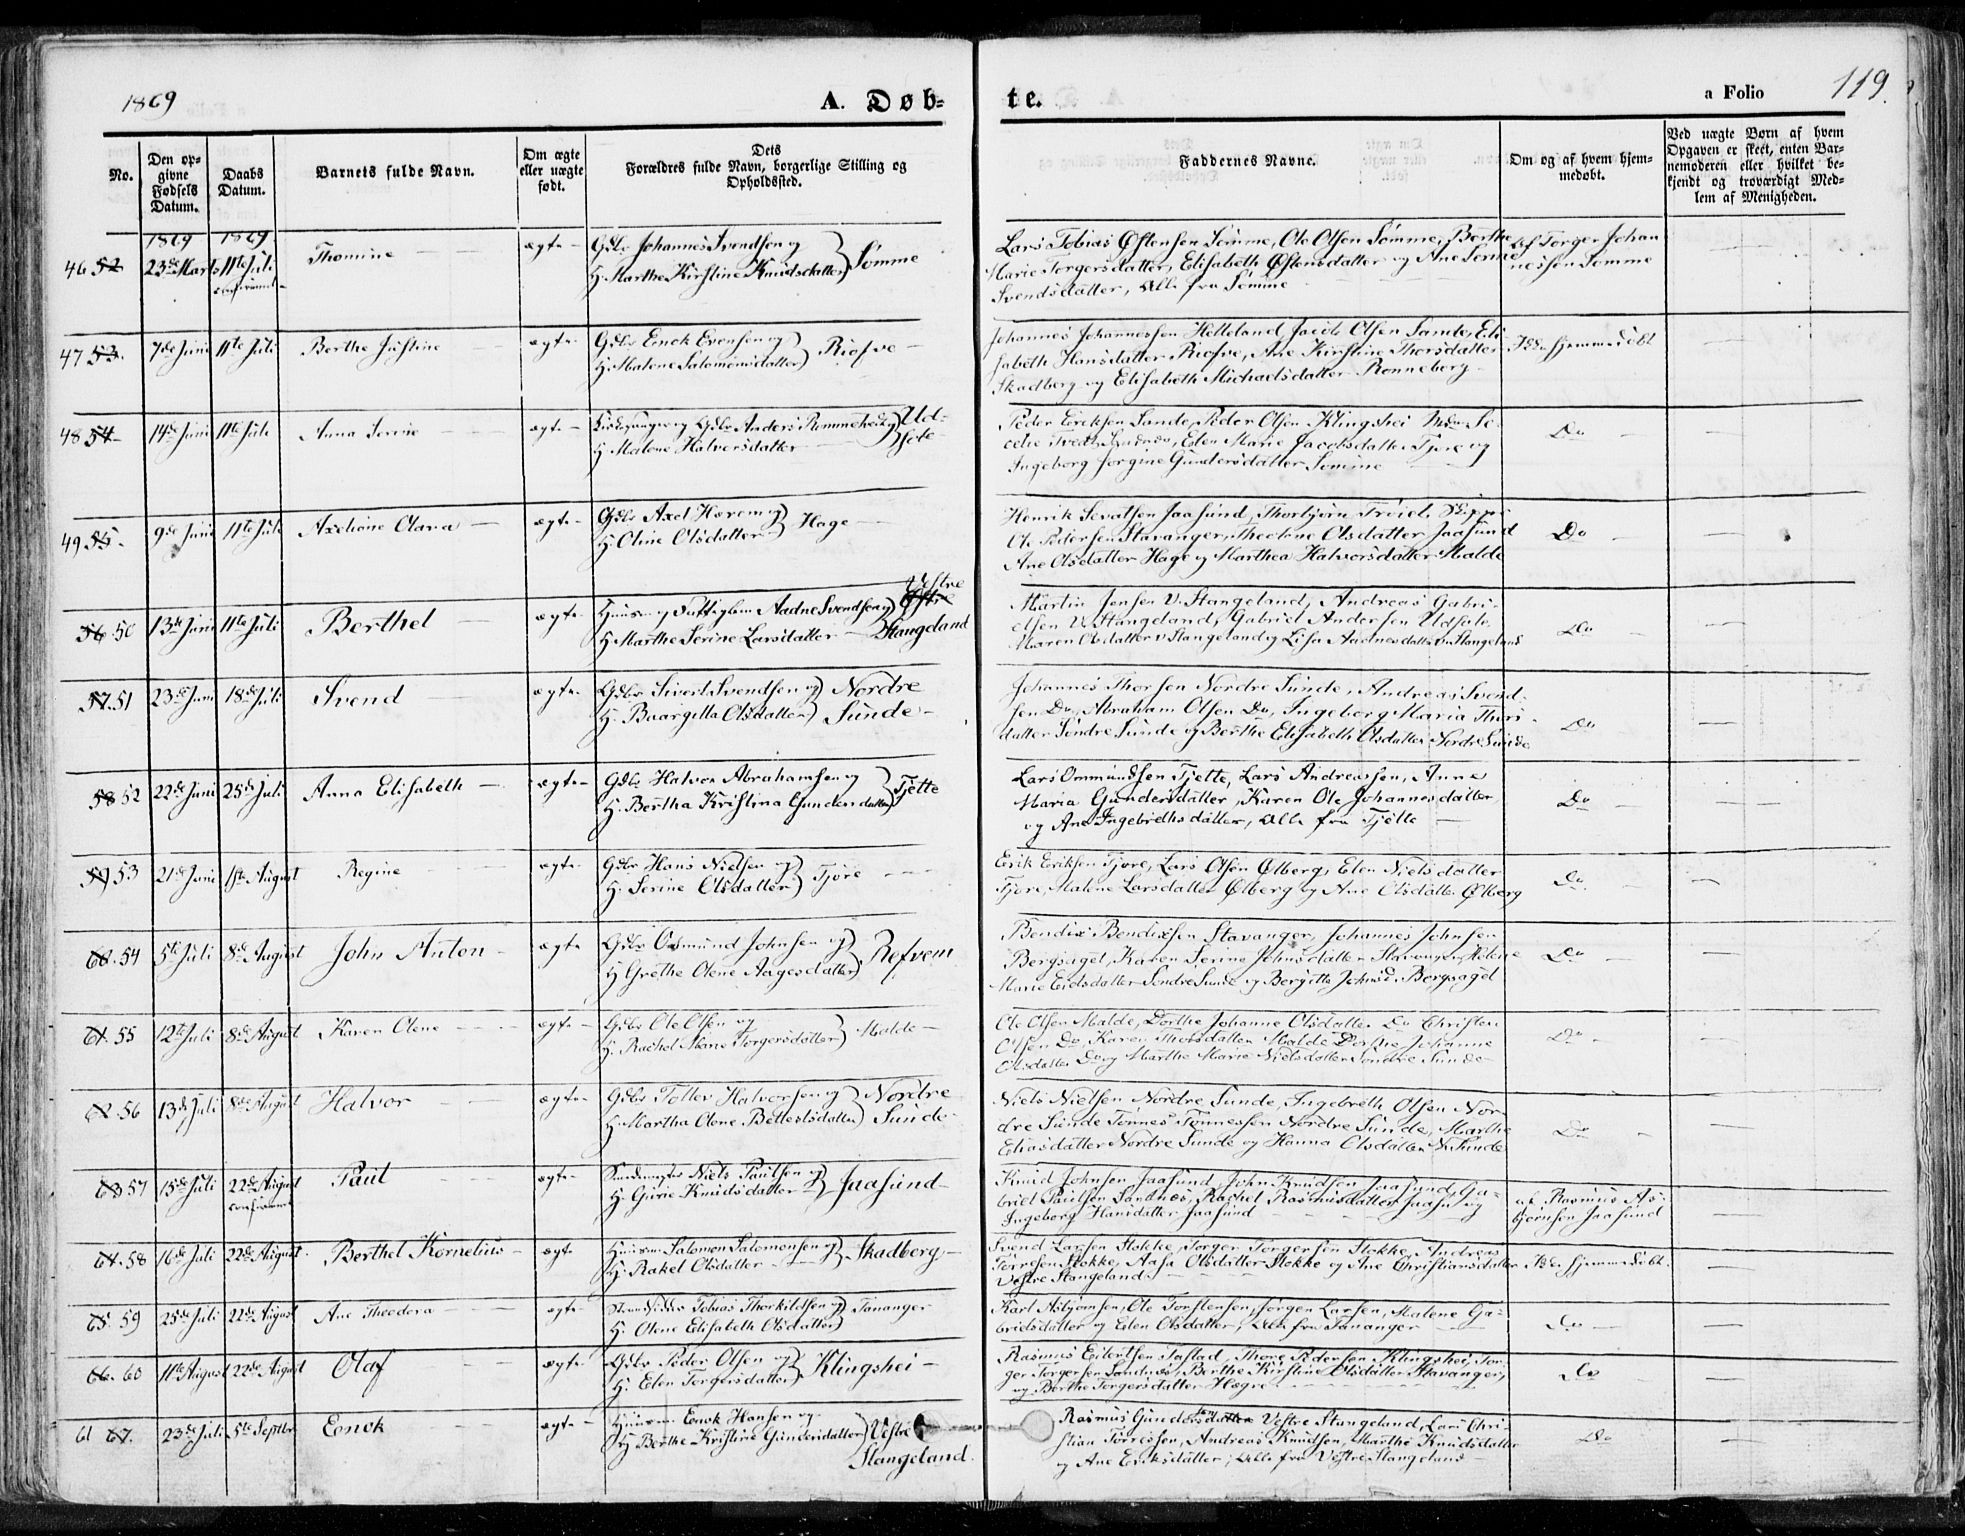 1869
A. Døb-
te.
a Folio
119.
No.
Den op-
givne
Fødsels
Datum.
Daabs
Datum.
Barnets fulde Navn.
Om ægte
eller uægte
født.
Dets
Forældres fulde Navn, borgerlige Stilling og
Opholdssted.
Faddernes Navne.
Om og af hvem hjem-
medøbt.
Ved uægte Børn af hvem
Opgaven er skeet, enten Bar-
nemoderen eller hvilket be-
kjendt og troværdigt Med-
lem af Menigheden.
1869 1869
46 52 23de Marts 11te Juli Thomine ægte Gdbr Johannes Svendsen og
H. Marthe Kirstine Knudsdatter } Sømme
Lars Tobias Østensen Sømme, Ole Olsen Sømme, Berthe
Marie Torgersdatter, Elisabeth Østensdatter og Ane Serine
Svendsdatter, Alle fra Sømme
Af Torger Johan
nessen Sømme
47 53. 7de Juni 11te Juli Berthe Justine ægte Gdbr Enok Evensen og
H. Malene Salomonsdatter } Risfve
Johannes Johannessen Helleland, Jacob Olsen Sande, Eli
sabeth Hansdatter Risfve, Ane Kirstine Thorsdatter
Skadberg og Elisabeth Michaelsdatter Rønneberg
Ikke hjemmedøbt
48 54 14de Juni 11te Juli Anna Serine ægte Kirkesanger og Gdbr Anders Rummehedt og
H. Malene Halvorsdatter } Ud-
sole
Peder Eriksen Sande, Peder Olsen Klingshei Mdm Ce-
celie Tvedt Sandnes, Elen Marie Jacobsdatter Tjore og
Ingeborg Jorgine Gundersdatter Sømme
Do
49 55. 9de Juni 11te Juli Axeliane Clara ægte Gdbr Axel Hærem og
H. Oline Olsdatter } Hage
Henrik Sevatsen Jaasund, Thorbjørn Trøiel, Skipper
Ole Pedersen Stavanger, Theoline Olsdatter Jaasund
Ane Olsdatter Hage og Marthea Halvorsdatter Malde
Do
56 50 13de Juni 11te Juli Berthel ægte Huusm og Fattiglem Aadne Svendsen og
H. Marthe Serine Larsdatter Vestre
Østre
Stangeland
Martin Jensen V. Stangeland, Andreas Gabri-
elsen V. Stangeland, Gabriel Andersen Udsole
Maren Olsdatter v Stangeland og Lisa Aadnesdatter V. Stangeland
Do
57 51 23de Juni 18de Juli Svend ægte Gdbr Sivert Svendsen og
H. Baargilla Olsdatter } Nordre
Sunde
Johannes Thorsen Nordre Sunde, Andreas Svend-
sen Do, Abraham Olsen Do, Ingeborg Maria Thors
datter Søndre Sunde og Berthe Elisabeth Olsdatter Nordre Sunde
Do
58 52 22de Juni 25de Juli Anna Elisabeth ægte Gdbr Halvor Abrahamsen og
H. Bertha Kristina Gundersdatter } Tjelte
Lars Ommundsen Tjelte, Lars Andreassen, Anna
Maria Gundersdatter, Karen Ole Johannesdatter
og Ane Ingebrethsdatter, Alle fra Tjelte
Do
59 53 21de Juni 1ste August Regine ægte Gdbr Hans Nielsen og
H. Serine Olsdatter } Tjore
Erik Eriksen Tjore, Lars Olsen Ølberg, Elen Nielsdatter
Tjore, Malene Larsdatter Ølberg og Ane Olsdatter Ølberg
Do
60. 54 5te Juli 8de August John Anton ægte Gdbr Osmund Johnsen og
H. Grethe Olene Aagesdatter } Refvem
Bendix Bendixsen Stavanger, Johannes Johnsen
Bergsagel, Karen Serine Johnsdatter Stavanger, Helene
Marie Eidsdatter Søndre Sunde og Bergitte Johnsd. Bergsagel
Do
61. 55 12te Juli 8de August Karen Olene ægte Gdbr Ole Olsen og
H. Rachel Marie Torgersdatter } Malde
Ole Olsen Malde, Dorthe Johanne Olsdatter Do Christen
Olsen Do, Karen Thorsdatter Malde Dorthe Johanne
Olsdatter Do og Marthe Marie Nielsdatter Søndre Sunde
Do
62 56 13de Juli 8de August Halvor ægte Gdbr Tollev Halvorsen og
H. Martha Olene Bettestsdatter } Nordre
Sunde
Niels Nielsen Nordre Sunde, Ingebreth Olsen Nor-
dre Sunde Tønnes Tønnessen Nordre Sunde, Marthe
Eliasdatter Nordre Sunde og Hanna Olsdatter N. Sunde
Do
63 57 15de Juli 22de August Paul ægte Niels Paulsen og
H. Gurie Knudsdatter } Jaasund
Knud Johnsen Jaasund, John Knudsen Jaasund, Ga-
briel Paulsen Sandnes, Rachel Rasmusdatter Jaasu og
Ingeborg Hansdatter Jaasund
af Rasmus As-
bjørnsen Jaasund
64. 58 16de Juli 22de August Berthel Kornelius ægte Huusm Salomon Salomonsen og
H. Rakel Olsdatter } Skadberg
Svend Larsen Stokke, Torger Torgersen Stokke, Andreas
Torresen Stokke, Aasa Olsdatter Stokke og Ane Christiansdatter
Vestre Stangeland
Ikke hjemmedøbt
65. 59 25de Juli 22de August Ane Theodora ægte Strandsidder Tobias Thorkildsen og
H. Olene Elisabeth Olsdatter } Tananger
Karl Asbjørnsen, Ole Torstensen, Jørgen Larsen, Malene Ga-
brielsdatter og Elen Olsdatter, Alle fra Tananger
Do
66. 60 11te August 22de August Olaf ægte Gdbr Peder Olsen og
H. Elen Torgersdatter } Klingshei
Rasmus Eilertsen Tastad, Thore Pedersen Klingshei, Tor-
ger Torgersen Sandnes, Berthe Kirstine Olsdatter Stavanger,
og Berthe Torgersdatter Hægre
Do
61 67. 23de Juli 5te Septbr Eenok ægte Huusm Eenok Hansen og
H. Berthe Kristine Gundersdatter } Vestre
Stangeland.
Rasmus Gundersdatter sen Vestre Stangeland, Lars Chri-
stian Torressen, Andreas Knudsen, Marthe Knudsdatter
og Ane Eriksdatter, Alle fra Vestre Stangeland
Do